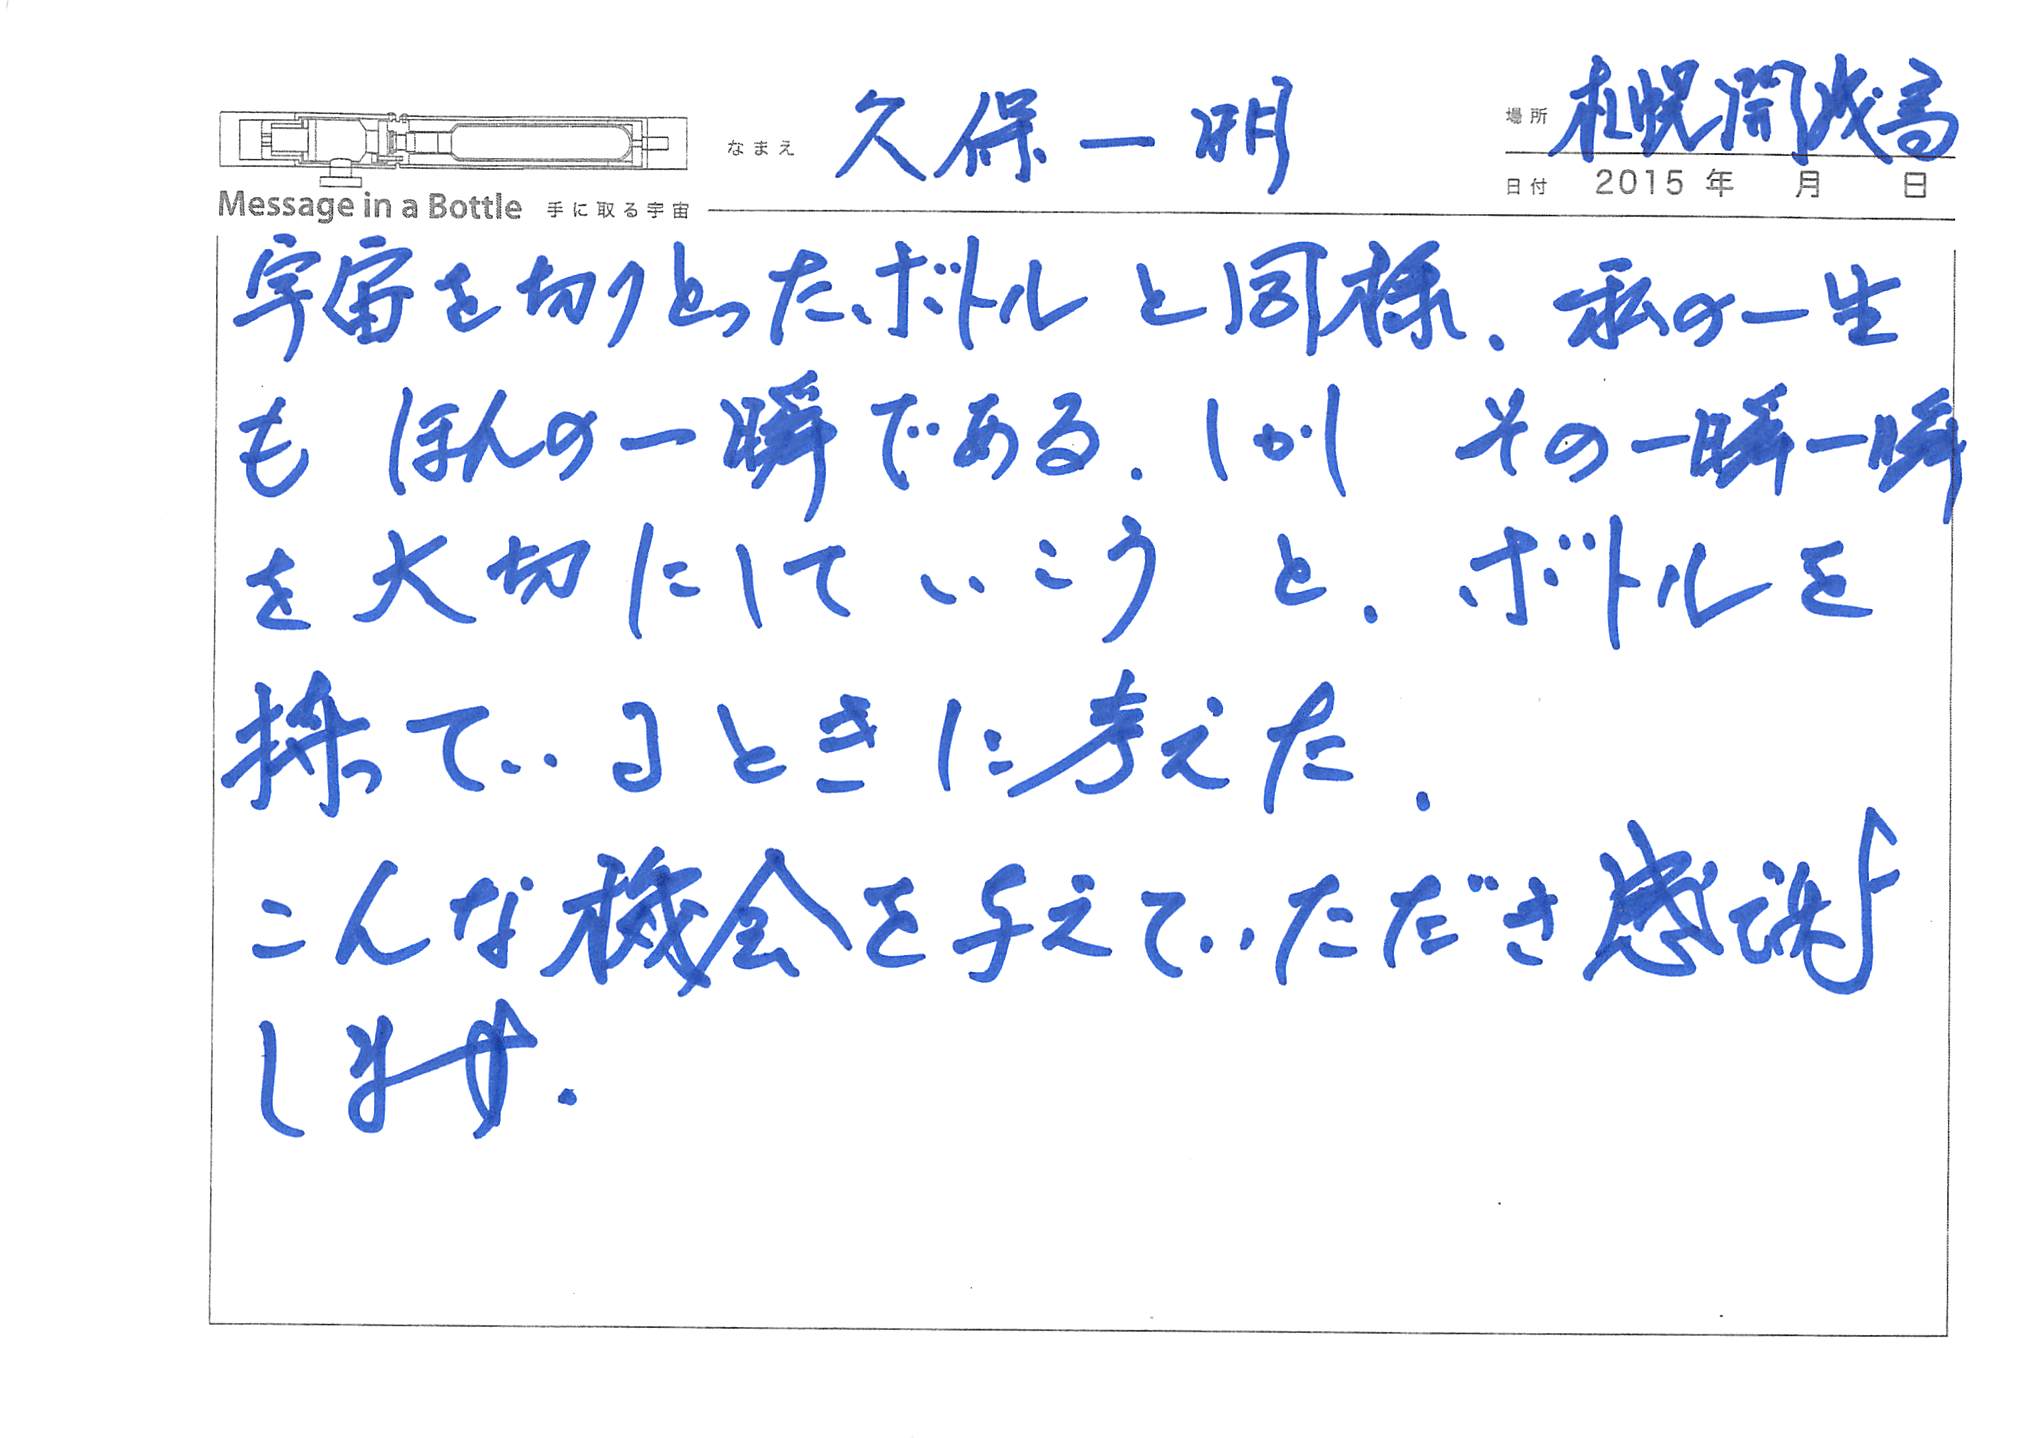 なまえ 久保一明
場所 札幌開成高
日付 2015 年 月 日
Message in a Bottle 手に取る宇宙
宇宙を切りとったボトルと同様、私の一生
もほんの一瞬である. しかし その一瞬一瞬
を大切にしていこう と、ボトルを
持っているときに考えた.
こんな機会を与えていただき感謝
します.